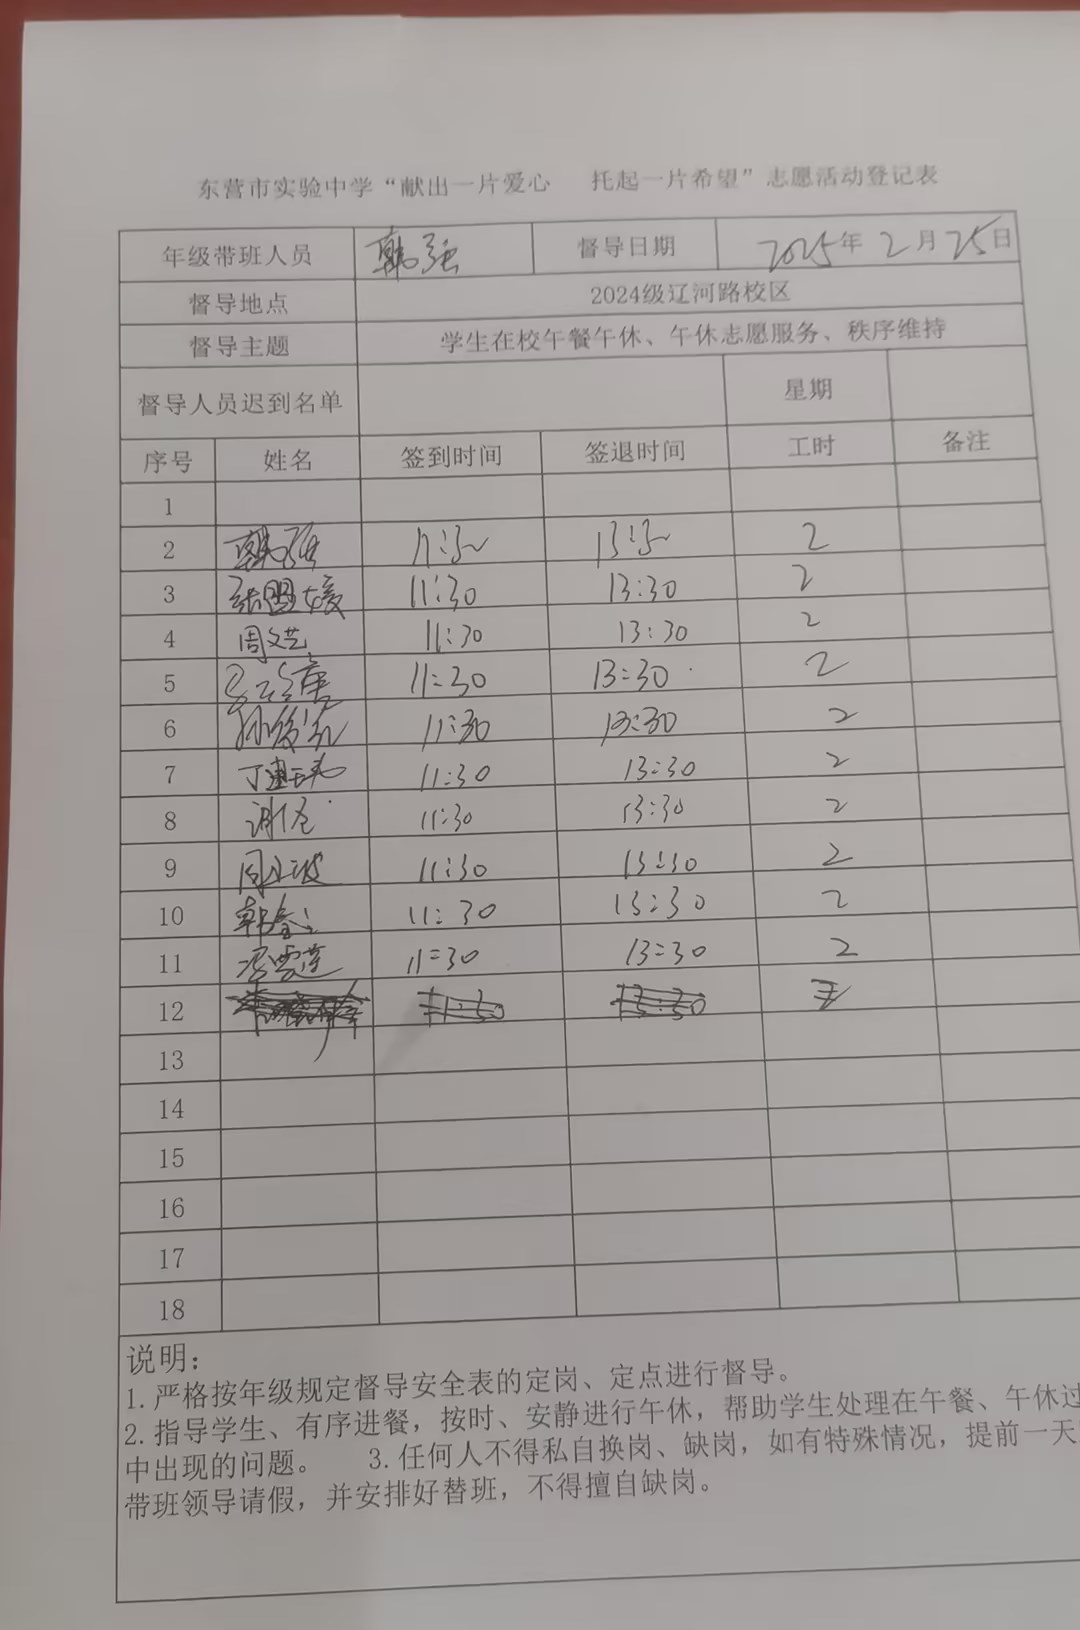 东营市实验中学“献出一片爱心 托起一片希望”志愿活动登记表
年级带班人员 韩强 督导日期 2025年2月25日
督导地点 2024级辽河路校区
督导主题 学生在校午餐午休、午休志愿服务、秩序维持
督导人员迟到名单 星期
序号 姓名 签到时间 签退时间 工时 备注
1
2 韩强 11:30 13:30 2
3 张盟媛 11:30 13:30 2
4 周文艺 11:30 13:30 2
5 11:30 13:30 2
6 11:30 13:30 2
7 丁建 11:30 13:30 2
8 谢 11:30 13:30 2
9 周 11:30 13:30 2
10 韩 11:30 13:30 2
11 冯雪莲 11:30 13:30 2
12 11:30 13:30 2
13
14
15
16
17
18
说明：
1.严格按年级规定督导安全表的定岗、定点进行督导。
2.指导学生、有序进餐，按时、安静进行午休，帮助学生处理在午餐、午休过
中出现的问题。 3.任何人不得私自换岗、缺岗，如有特殊情况，提前一天
带班领导请假，并安排好替班，不得擅自缺岗。